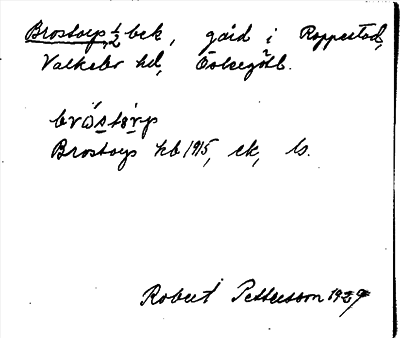 Brostorp, ½ bek, gård i Rappestad,
Valkebo hd, Östergötl.
brɷ́stɷ̀rp
Brostorp hb 1915, ek, ls.
Robert Pettersson 1929